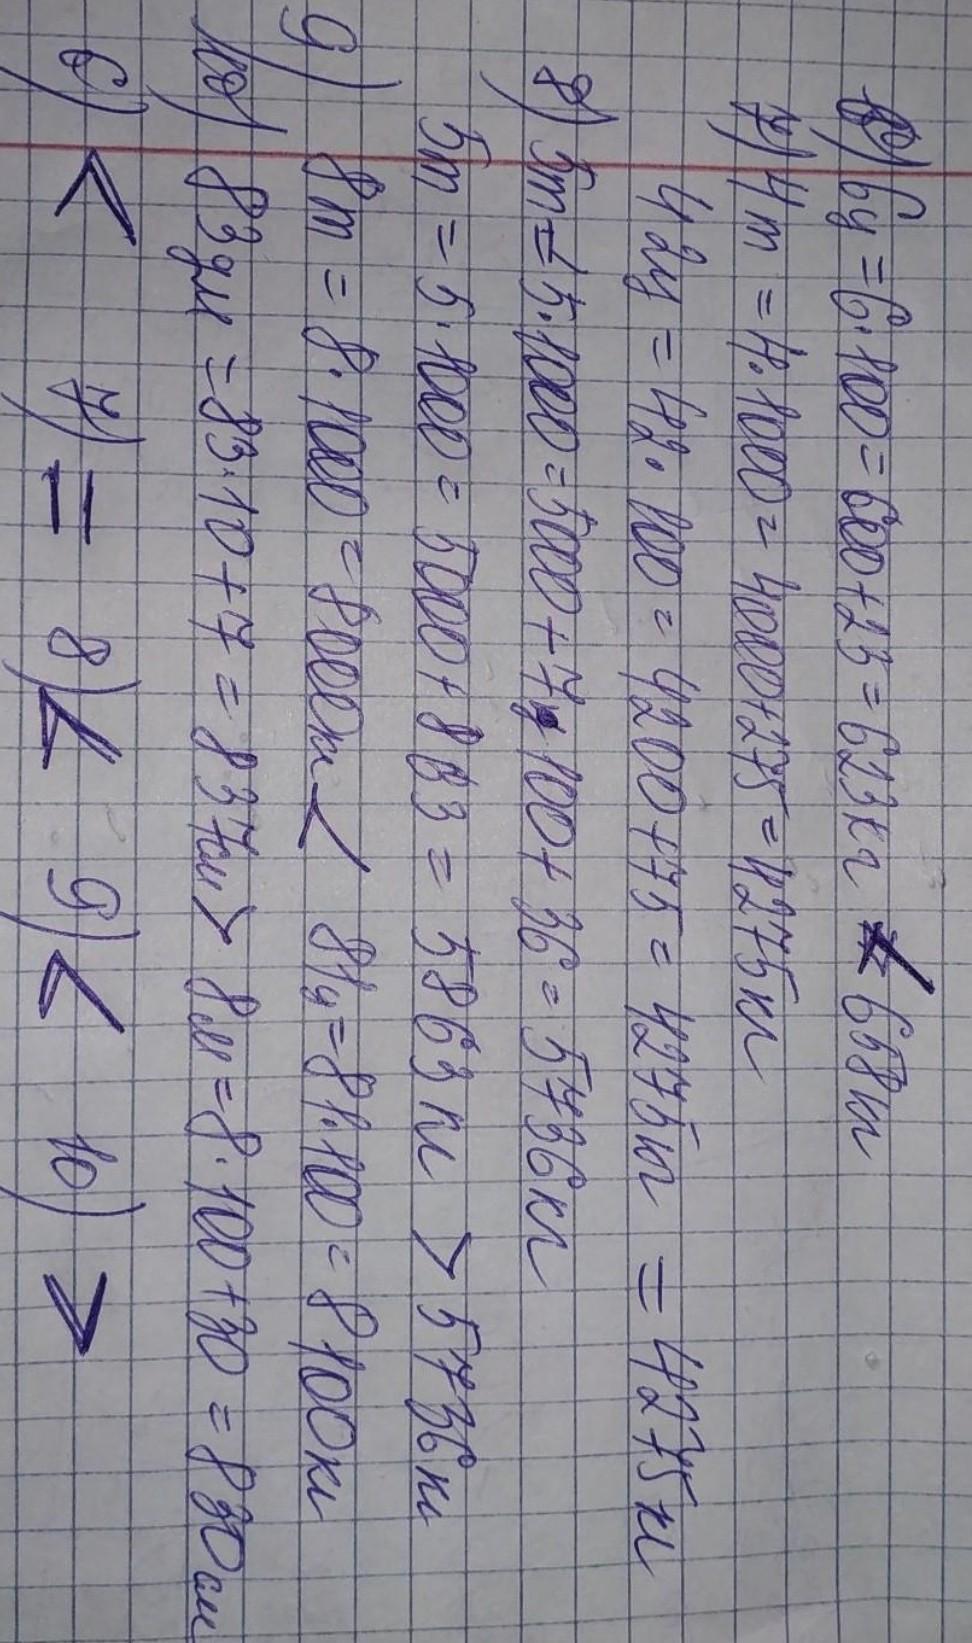 6) 6ц = 6·100 = 600+23 = 623кг < 658кг
7) 4т = 4·1000 = 4000+275 = 4275кг
42ц = 42·100 = 4200+75 = 4275кг = 4275кг
8) 5т = 5·1000 = 5000+7·100+36 = 5736кг
5т = 5·1000 = 5000+863 = 5863кг > 5736кг
9) 8т = 8·1000 = 8000кг < 81ц = 81·100 = 8100кг
10) 83дм = 83·10+7 = 837см > 8м = 8·100+30 = 830см
6) > 7) = 8) < 9) > 10) <